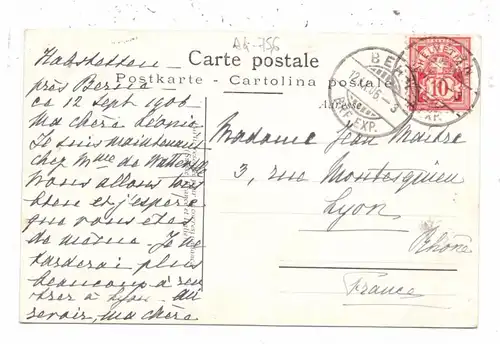 AK-756
Carte postale
Postkarte - Cartolina postale
Adresse
BERN
12. IX. 06 - 3
BRF. EXP.
HELVETIA
10
Hahstetten
près Berne
ce 12 Sept 1906
Ma chère Léonie
Je suis maintenant
chez Mme de Watteville
nous allons tout
bien et j'espère
que vous êtes
de même. Je ne
tarderai plus
beaucoup à ren
trer à Lyon. Au
revoir, ma chère
Madame Jean Maitre
3, rue Montesquieu
Lyon
Rhône
France